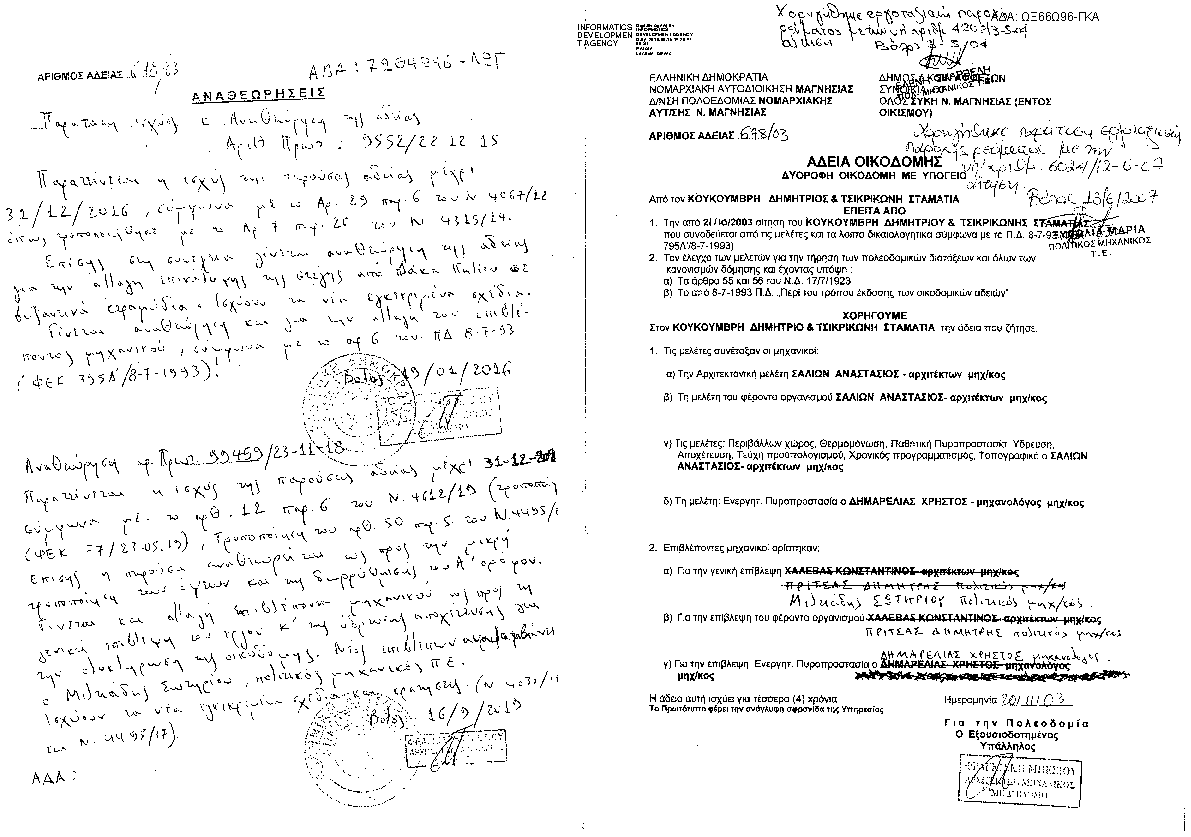 ΑΡΙΘΜΟΣ ΑΔΕΙΑΣ 678/03
ΑΝΑΘΕΩΡΗΣΕΙΣ
Παράταση ισχύος & Αναθεώρηση της άδειας
Αριθ Πρωτ: 9552/22 12 15
Παρατείνεται η ισχύς της παρούσας άδειας μέχρι
31/12/2016, σύμφωνα με το Αρ. 29 παρ. 6 του Ν 4067/12
όπως τροποποιήθηκε με το Αρ 7 παρ. 26 του Ν 4315/14.
Επίσης στη συνέχεια γίνεται αναθεώρηση της άδειας
για την αλλαγή επικάλυψης της στέγης από πλάκα Πηλίου σε
βυζαντινά κεραμίδια. Ισχύουν τα νέα εγκεκριμένα σχέδια.
Γίνεται αναθεώρηση και για την αλλαγή του επιβλέ-
ποντος μηχανικού, σύμφωνα με το αρ 6 του ΠΔ 8-7-93
(ΦΕΚ 795Δ/8-7-1993).
Βόλος 19/01/2016
Αναθεώρηση αρ. Πρωτ. 99459/23-11-18
Παρατείνεται η ισχύς της παρούσας άδειας μέχρι 31-12-
σύμφωνα με το αρθ. 12 παρ. 6 του Ν. 4612/19
(ΦΕΚ 77/23.05.19), Τροποποίηση του αρθ. 50 παρ. 5 του Ν.4495/
Επίσης η παρούσα αναθεωρείται ως προς την μικρή
τροποποίηση των όψεων και της διαρρύθμισης του Α' ορόφου.
Γίνεται και αλλαγή επιβλέποντα μηχανικού ως προς τη
γενική επίβλεψη του έργου κ' της υδραυλικής αποχέτευσης για
την ολοκλήρωση της οικοδομής. Νέος επιβλέπων αναλαμβάνει
ο Μιλτιάδης Σωτηρίου, πολιτικός μηχανικός Π.Ε.
Ισχύουν τα νέα εγκεκριμένα σχέδια και
του Ν. 4495/17).
Βόλος 16/9/2019
ΑΔΑ:
INFORMATICS
DEVELOPMEN
T AGENCY
Χορηγήθηκε εργοταξιακή παροχή
ρεύματος με την αριθμ
Βόλος
ΑΔΑ: ΩΞ66Ω96-ΓΚΑ
ΕΛΛΗΝΙΚΗ ΔΗΜΟΚΡΑΤΙΑ
ΝΟΜΑΡΧΙΑΚΗ ΑΥΤΟΔΙΟΙΚΗΣΗ ΜΑΓΝΗΣΙΑΣ
Δ/ΝΣΗ ΠΟΛΕΟΔΟΜΙΑΣ ΝΟΜΑΡΧΙΑΚΗΣ
ΑΥΤ/ΣΗΣ Ν. ΜΑΓΝΗΣΙΑΣ
ΟΔΟΣ ΣΥΚΗ Ν. ΜΑΓΝΗΣΙΑΣ (ΕΝΤΟΣ
ΟΙΚΙΣΜΟΥ)
ΑΡΙΘΜΟΣ ΑΔΕΙΑΣ 678/03
Χορηγήθηκε παράταση εργοταξιακή
παροχή ρεύματος με την
αριθμ. 6024/12-6-07
αίτηση
Βόλος 13/6/2007
ΜΑΡΙΑ
ΠΟΛΙΤΙΚΟΣ ΜΗΧΑΝΙΚΟΣ
Τ.Ε.
ΑΔΕΙΑ ΟΙΚΟΔΟΜΗΣ
ΔΥΟΡΟΦΗ ΟΙΚΟΔΟΜΗ ΜΕ ΥΠΟΓΕΙΟ
Από τον ΚΟΥΚΟΥΜΒΡΗ ΔΗΜΗΤΡΙΟΣ & ΤΣΙΚΡΙΚΩΝΗ ΣΤΑΜΑΤΙΑ
ΕΠΕΙΤΑ ΑΠΟ
1. Την από 21/10/2003 αίτηση του ΚΟΥΚΟΥΜΒΡΗ ΔΗΜΗΤΡΙΟΥ & ΤΣΙΚΡΙΚΩΝΗΣ ΣΤΑΜΑΤΙΑΣ
που συνοδεύεται από τις μελέτες και τα λοιπά δικαιολογητικά σύμφωνα με το Π.Δ. 8-7-93
795Δ/8-7-1993)
2. Τον έλεγχο των μελετών για την τήρηση των πολεοδομικών διατάξεων και όλων των
κανονισμών δόμησης και έχοντας υπόψη :
α) Τα άρθρα 55 και 56 του Ν.Δ. 17/7/1923
β) Το από 8-7-1993 Π.Δ. „Περί του τρόπου έκδοσης των οικοδομικών αδειών"
ΧΟΡΗΓΟΥΜΕ
Στον ΚΟΥΚΟΥΜΒΡΗ ΔΗΜΗΤΡΙΟ & ΤΣΙΚΡΙΚΩΝΗ ΣΤΑΜΑΤΙΑ την άδεια που ζήτησε.
1. Τις μελέτες συνέταξαν οι μηχανικοί:
α) Την Αρχιτεκτονική μελέτη ΣΑΛΙΩΝ ΑΝΑΣΤΑΣΙΟΣ - αρχιτέκτων μηχ/κος
β) Τη μελέτη του φέροντα οργανισμού ΣΑΛΙΩΝ ΑΝΑΣΤΑΣΙΟΣ- αρχιτέκτων μηχ/κος
γ) Τις μελέτες: Περιβάλλων χώρος, Θερμομόνωση, Παθητική Πυροπροστασία, Ύδρευση,
Αποχέτευση, Τεύχη προϋπολογισμού, Χρονικός προγραμματισμός, Τοπογραφικό ο ΣΑΛΙΩΝ
ΑΝΑΣΤΑΣΙΟΣ- αρχιτέκτων μηχ/κος
δ) Τη μελέτη: Ενεργητ. Πυροπροστασία ο ΔΗΜΑΡΕΛΙΑΣ ΧΡΗΣΤΟΣ - μηχανολόγος μηχ/κος
2. Επιβλέποντες μηχανικοί ορίστηκαν:
α) Για την γενική επίβλεψη ΧΑΛΕΒΑΣ ΚΩΝΣΤΑΝΤΙΝΟΣ- αρχιτέκτων μηχ/κος
ΠΡΙΤΣΑΣ ΔΗΜΗΤΡΗΣ πολιτικός μηχ/κος
Μιλτιάδης ΣΩΤΗΡΙΟΥ Πολιτικός μηχ/κός.
β) Για την επίβλεψη του φέροντα οργανισμού ΧΑΛΕΒΑΣ ΚΩΝΣΤΑΝΤΙΝΟΣ- αρχιτέκτων μηχ/κος
ΠΡΙΤΣΑΣ ΔΗΜΗΤΡΗΣ πολιτικός μηχ/κος
ΔΗΜΑΡΕΛΙΑΣ ΧΡΗΣΤΟΣ μηχανολόγος
γ) Για την επίβλεψη Ενεργητ. Πυροπροστασία ο ΔΗΜΑΡΕΛΙΑΣ ΧΡΗΣΤΟΣ- μηχανολόγος
μηχ/κος
Η άδεια αυτή ισχύει για τέσσερα (4) χρόνια
Το Πρωτότυπο φέρει την ανάγλυφη σφραγίδα της Υπηρεσίας
Ημερομηνία 20/11/03
Για την Πολεοδομία
Ο Εξουσιοδοτημένος
Υπάλληλος